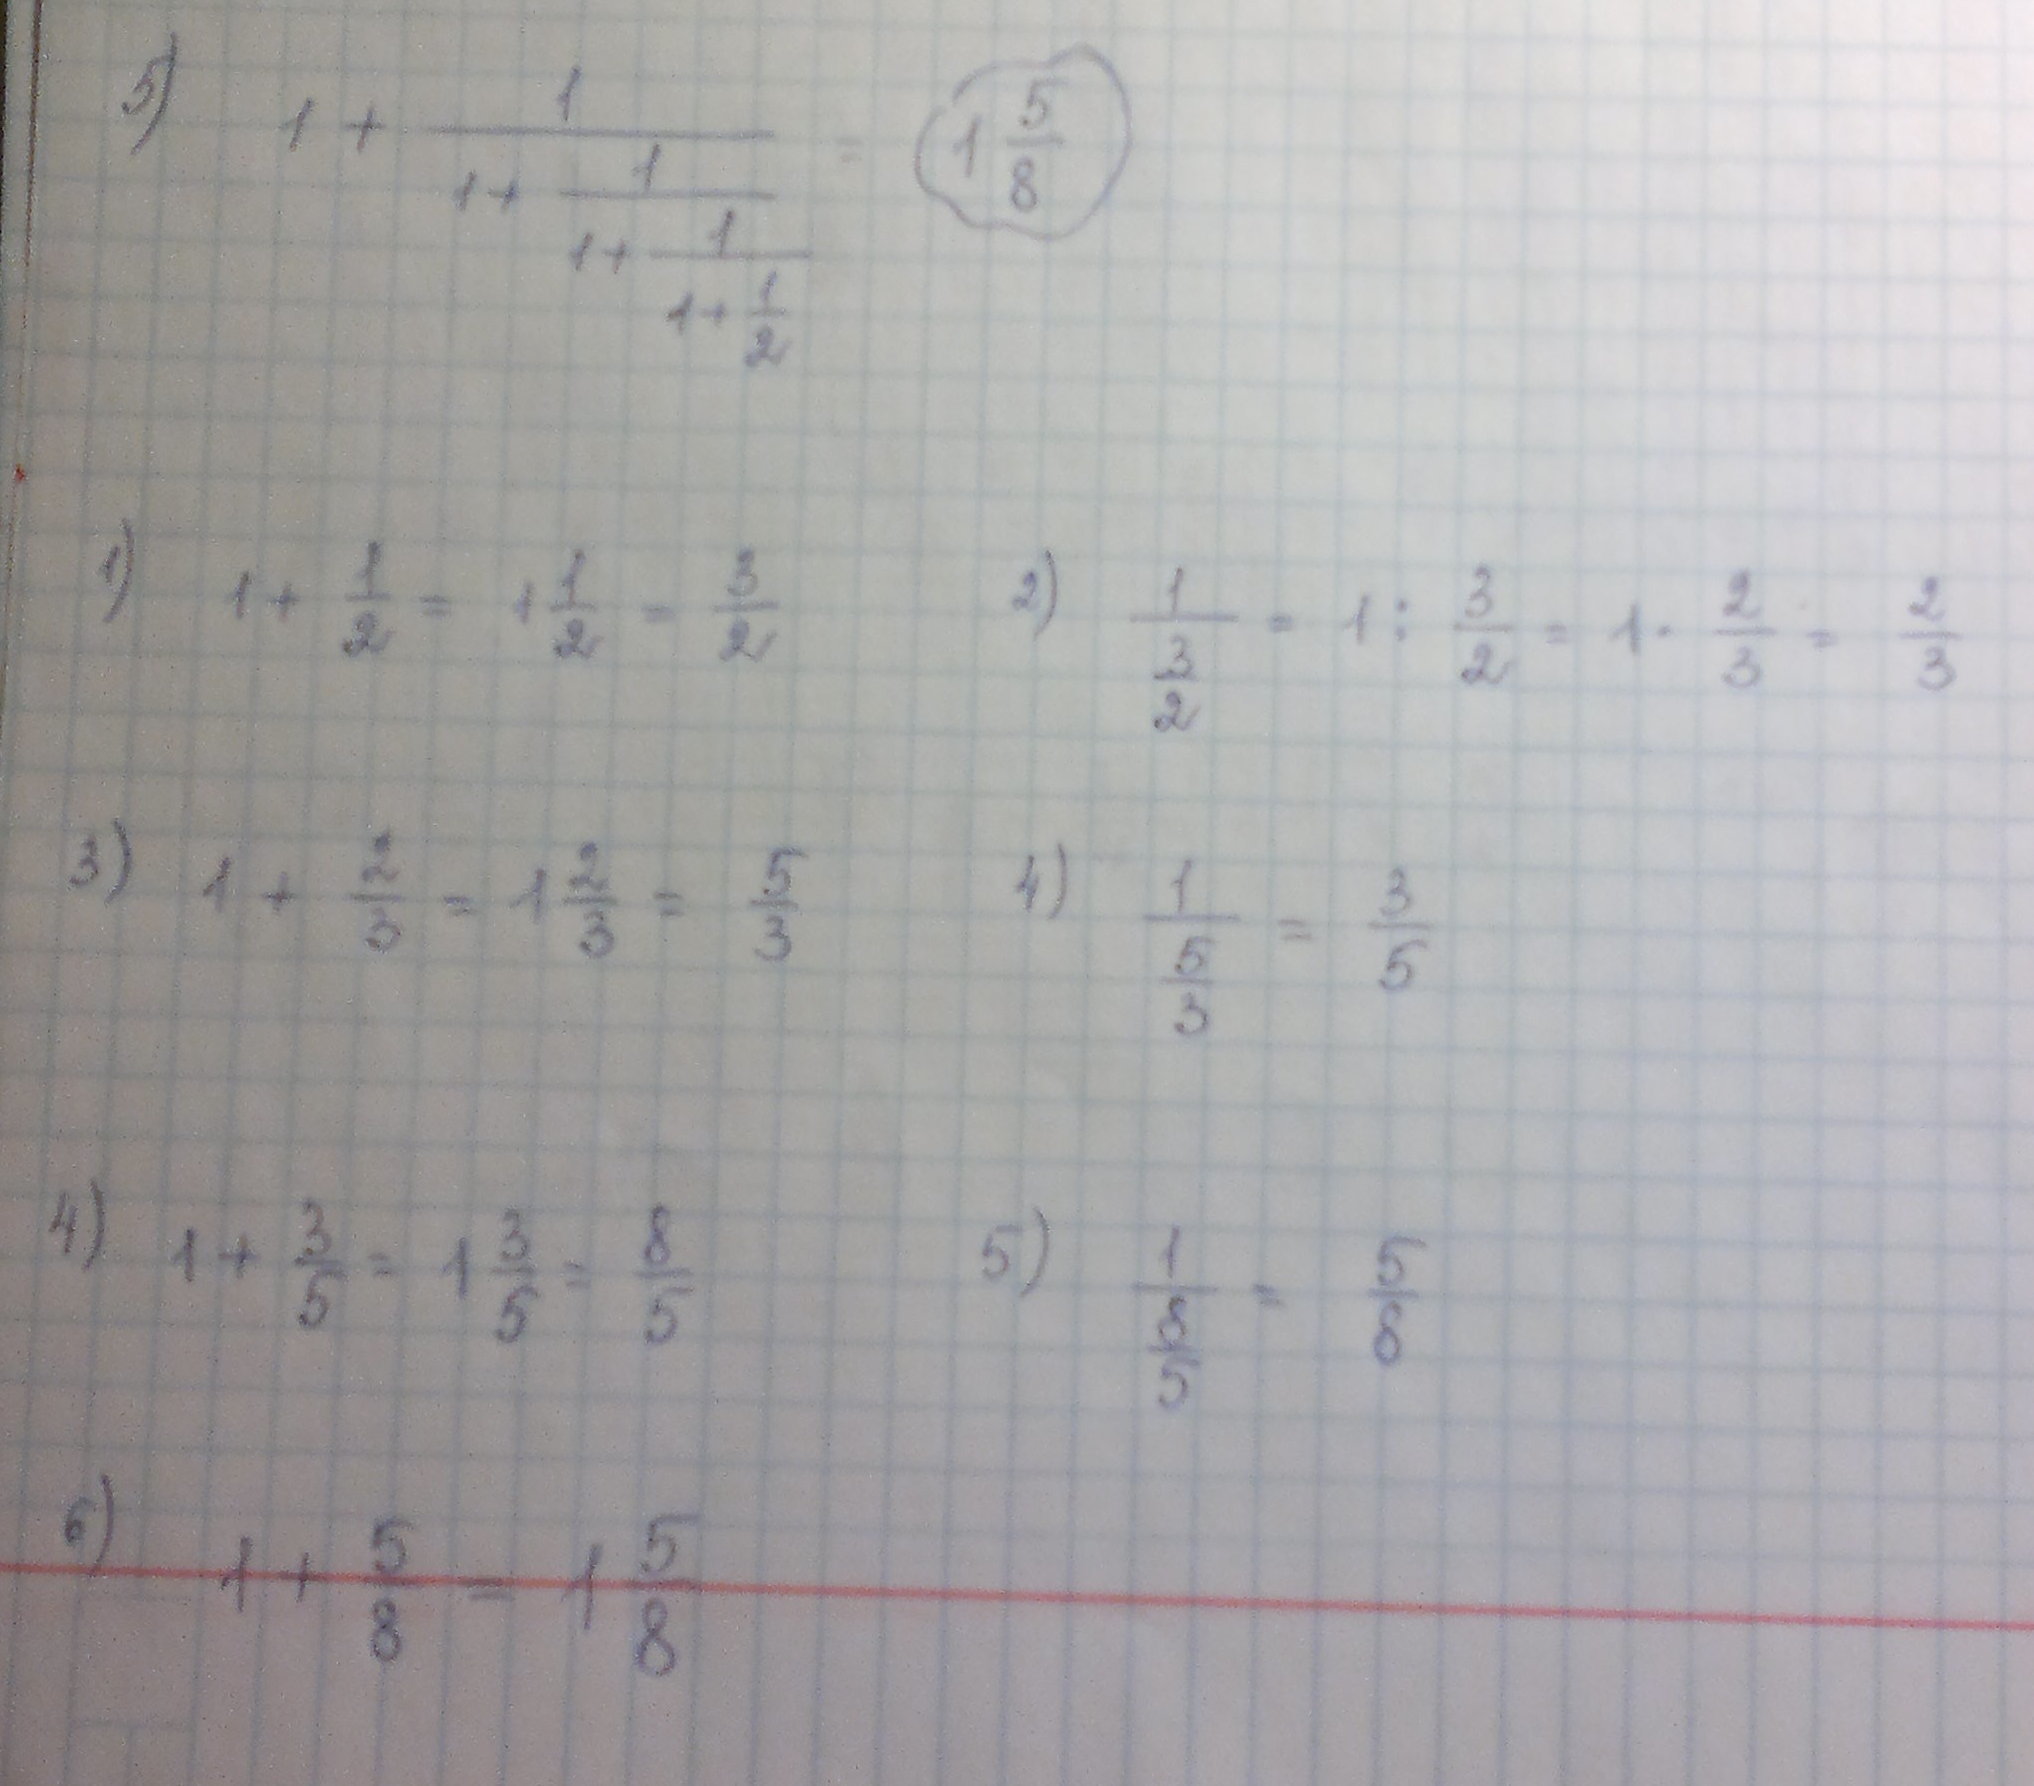 5) 1 + 1/(1 + 1/(1 + 1/(1 + 1/2))) = 1 5/8
1) 1 + 1/2 = 1 1/2 = 3/2 2) 1/(3/2) = 1 : 3/2 = 1 · 2/3 = 2/3
3) 1 + 2/3 = 1 2/3 = 5/3 4) 1/(5/3) = 3/5
4) 1 + 3/5 = 1 3/5 = 8/5 5) 1/(8/5) = 5/8
6) 1 + 5/8 = 1 5/8